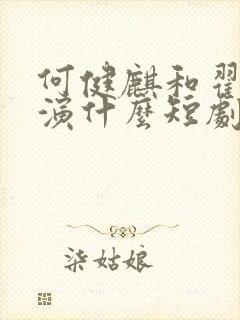 何健麒和翟
演什麼短劇
柒姑娘